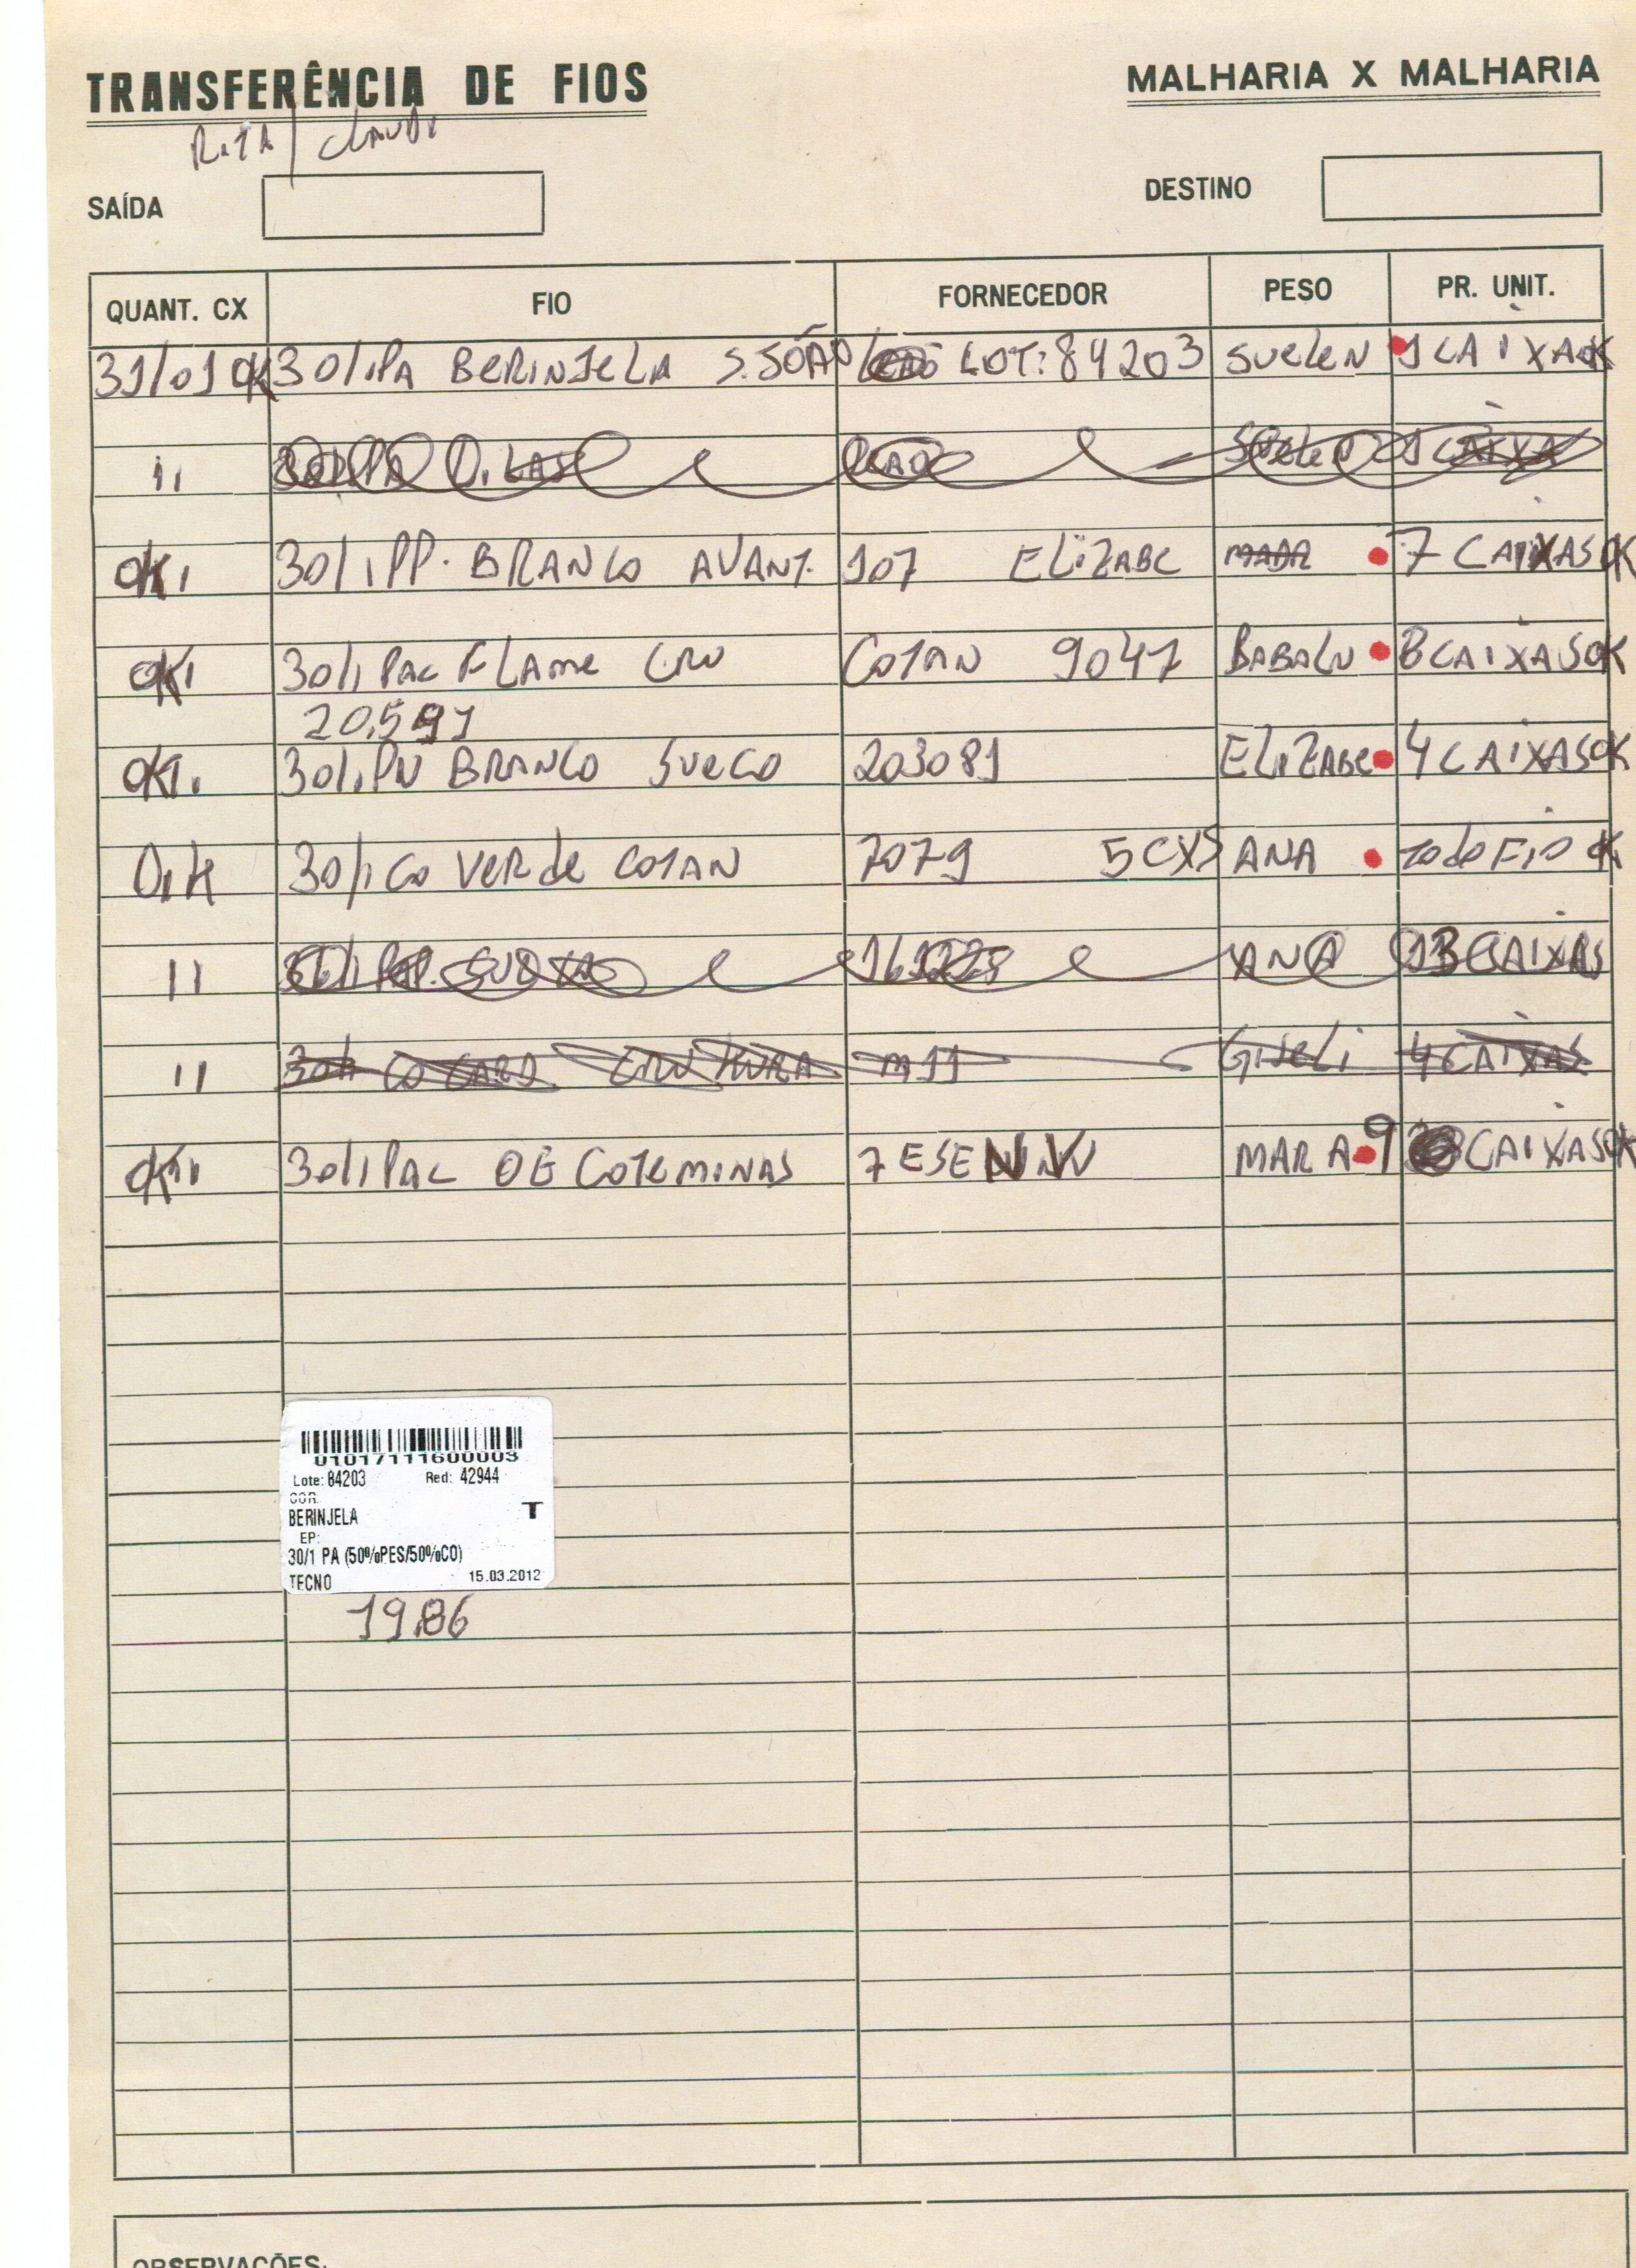 TRANSFERÊNCIA DE FIOS MALHARIA X MALHARIA
RITA / CLAUDI
SAÍDA DESTINO
QUANT. CX FIO FORNECEDOR PESO PR. UNIT.
31/01 OK 30/1 PA BERINJELA S. JOÃO LOT: 84203 SUELEN 1 CAIXA OK
11 SUELEN 1 CAIXA
OK 30/1 PP. BRANCO AVANT. 107 ELIZABE MARA 7 CAIXAS OK
OK 30/1 PAC FLAME CRU COTAN 9047 BABALU 8 CAIXAS OK
20.591
OK 30/1 PV BRANCO SUECO 203081 ELIZABE 4 CAIXAS OK
O.K 30/1 CO VERDE COTAN 7079 5 CXS ANA TODO FIO OK
11 30/1 ANA 13 CAIXAS
11 30/1 CO CARD CRU M11 GISELI 4 CAIXAS
OK 30/1 PAC OE COTEMINAS 7 MARA 9 CAIXAS OK
01017111600003
Lote: 84203 Red: 42944
COR:
BERINJELA T
EP:
30/1 PA (50%PES/50%CO)
TECNO 15.03.2012
19.86
OBSERVAÇÕES: